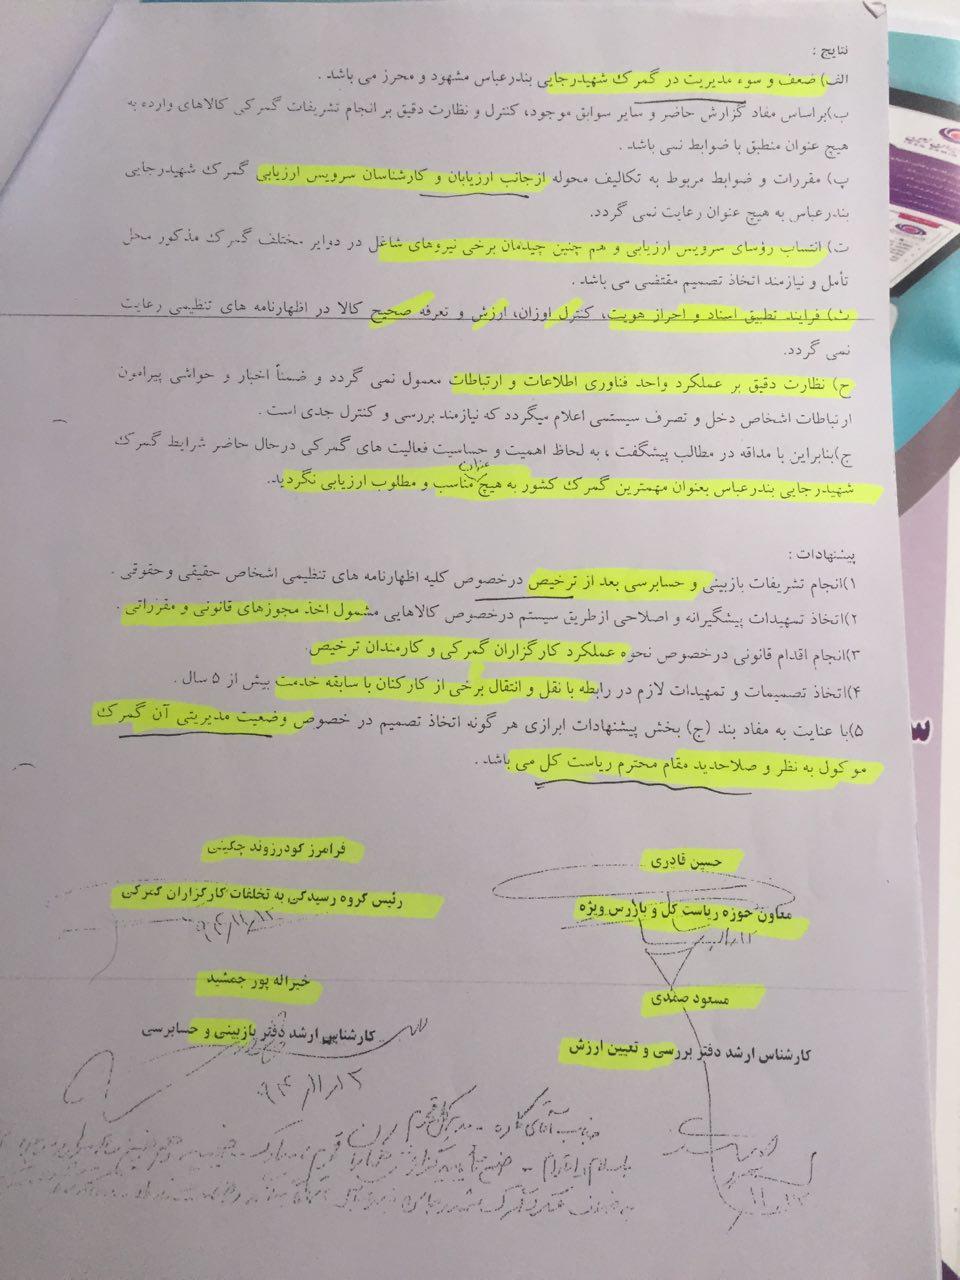 نتایج :
الف) ضعف و سوء مدیریت در گمرک شهیدرجایی بندرعباس مشهود و محرز می باشد .
ب)براساس مفاد گزارش حاضر و سایر سوابق موجود، کنترل و نظارت دقیق بر انجام تشریفات گمرکی کالاهای وارده به
هیچ عنوان منطبق با ضوابط نمی باشد .
پ) مقررات و ضوابط مربوط به تکالیف محوله ازجانب ارزیابان و کارشناسان سرویس ارزیابی گمرک شهیدرجایی
بندرعباس به هیچ عنوان رعایت نمی گردد.
ت) انتساب رؤسای سرویس ارزیابی و هم چنین چیدمان برخی نیروهای شاغل در دوایر مختلف گمرک مذکور محل
تأمل و نیازمند اتخاذ تصمیم مقتضی می باشد .
ث) فرایند تطبیق اسناد و احراز هویت، کنترل اوزان، ارزش و تعرفه صحیح کالا در اظهارنامه های تنظیمی رعایت
نمی گردد.
ج) نظارت دقیق بر عملکرد واحد فناوری اطلاعات و ارتباطات معمول نمی گردد و ضمناً اخبار و حواشی پیرامون
ارتباطات اشخاص دخل و تصرف سیستمی اعلام میگردد که نیازمند بررسی و کنترل جدی است .
چ)بنابراین با مداقه در مطالب پیشگفت ، به لحاظ اهمیت و حساسیت فعالیت های گمرکی درحال حاضر شرایط گمرک
شهیدرجایی بندرعباس بعنوان مهمترین گمرک کشور به هیچ عنوان مناسب و مطلوب ارزیابی نگردید.
پیشنهادات :
۱)انجام تشریفات بازبینی و حسابرسی بعد از ترخیص درخصوص کلیه اظهارنامه های تنظیمی اشخاص حقیقی وحقوقی .
۲)اتخاذ تمهیدات پیشگیرانه و اصلاحی ازطریق سیستم درخصوص کالاهایی مشمول اخذ مجوزهای قانونی و مقرراتی .
۳)انجام اقدام قانونی درخصوص نحوه عملکرد کارگزاران گمرکی و کارمندان ترخیص.
۴)اتخاذ تصمیمات و تمهیدات لازم در رابطه با نقل و انتقال برخی از کارکنان با سابقه خدمت بیش از ۵ سال .
۵)با عنایت به مفاد بند (ج) بخش پیشنهادات ابرازی هر گونه اتخاذ تصمیم در خصوص وضعیت مدیریتی آن گمرک
موکول به نظر و صلاحدید مقام محترم ریاست کل می باشد .
حسین قادری
معاون حوزه ریاست کل و بازرس ویژه
فرامرز گودرزوند چگینی
رئیس گروه رسیدگی به تخلفات کارگزاران گمرکی
۹۴/۱۱/۱۲
مسعود صمدی
کارشناس ارشد دفتر بررسی و تعیین ارزش
خیراله پور جمشید
کارشناس ارشد دفتر بازبینی و حسابرسی
۹۴/۱۱/۱۲